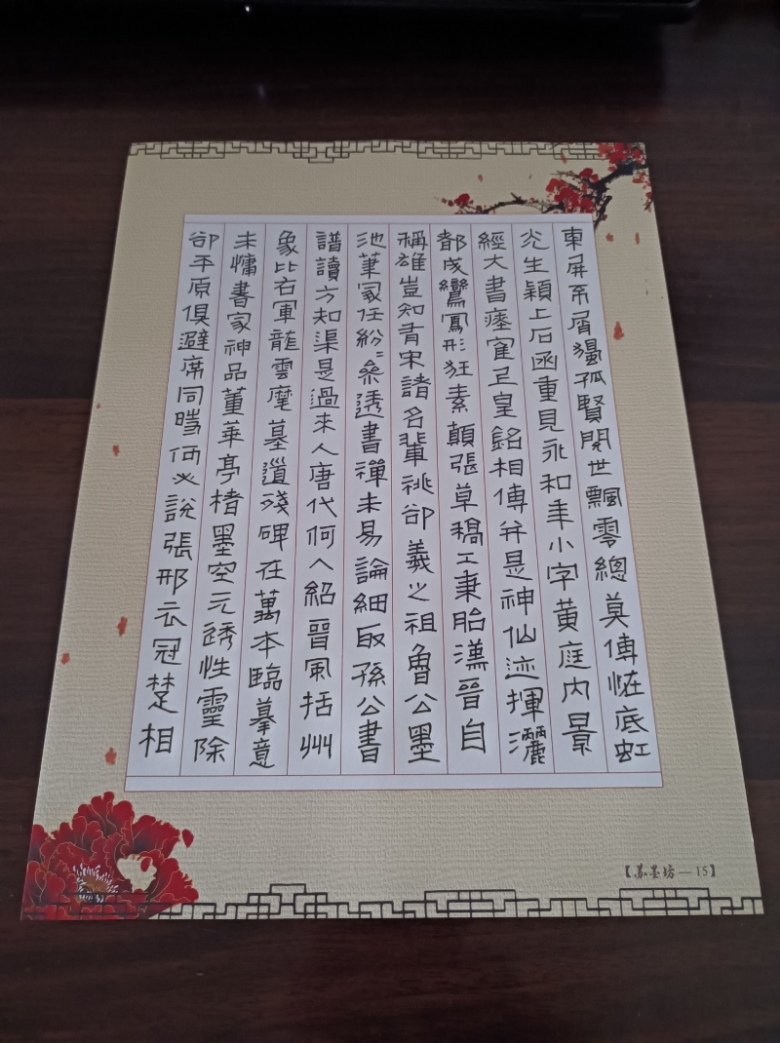 東屏系屑獨孤賢閱世飄零總莫傳恠底虹
光生穎上石函重見永和年小字黃庭內景
經大書瘞隺正皇銘相傳并是神仙迹揮灑
都成鸞鳳形狂素顛張草稿工秉胎漢晉自
稱雄豈知有宋諸名輩祧卻羲之祖魯公墨
池筆冢任紛〻參透書禪未易論細取孫公書
譜讀方知渠是過來人唐代何人紹晉風括州
象比右軍龍雲麾墓道殘碑在萬本臨摹意
未慵書家神品董華亭楮墨空元透性靈除
卻平原俱避席同時何必說張邢衣冠楚相
【蘇墨坊—15】